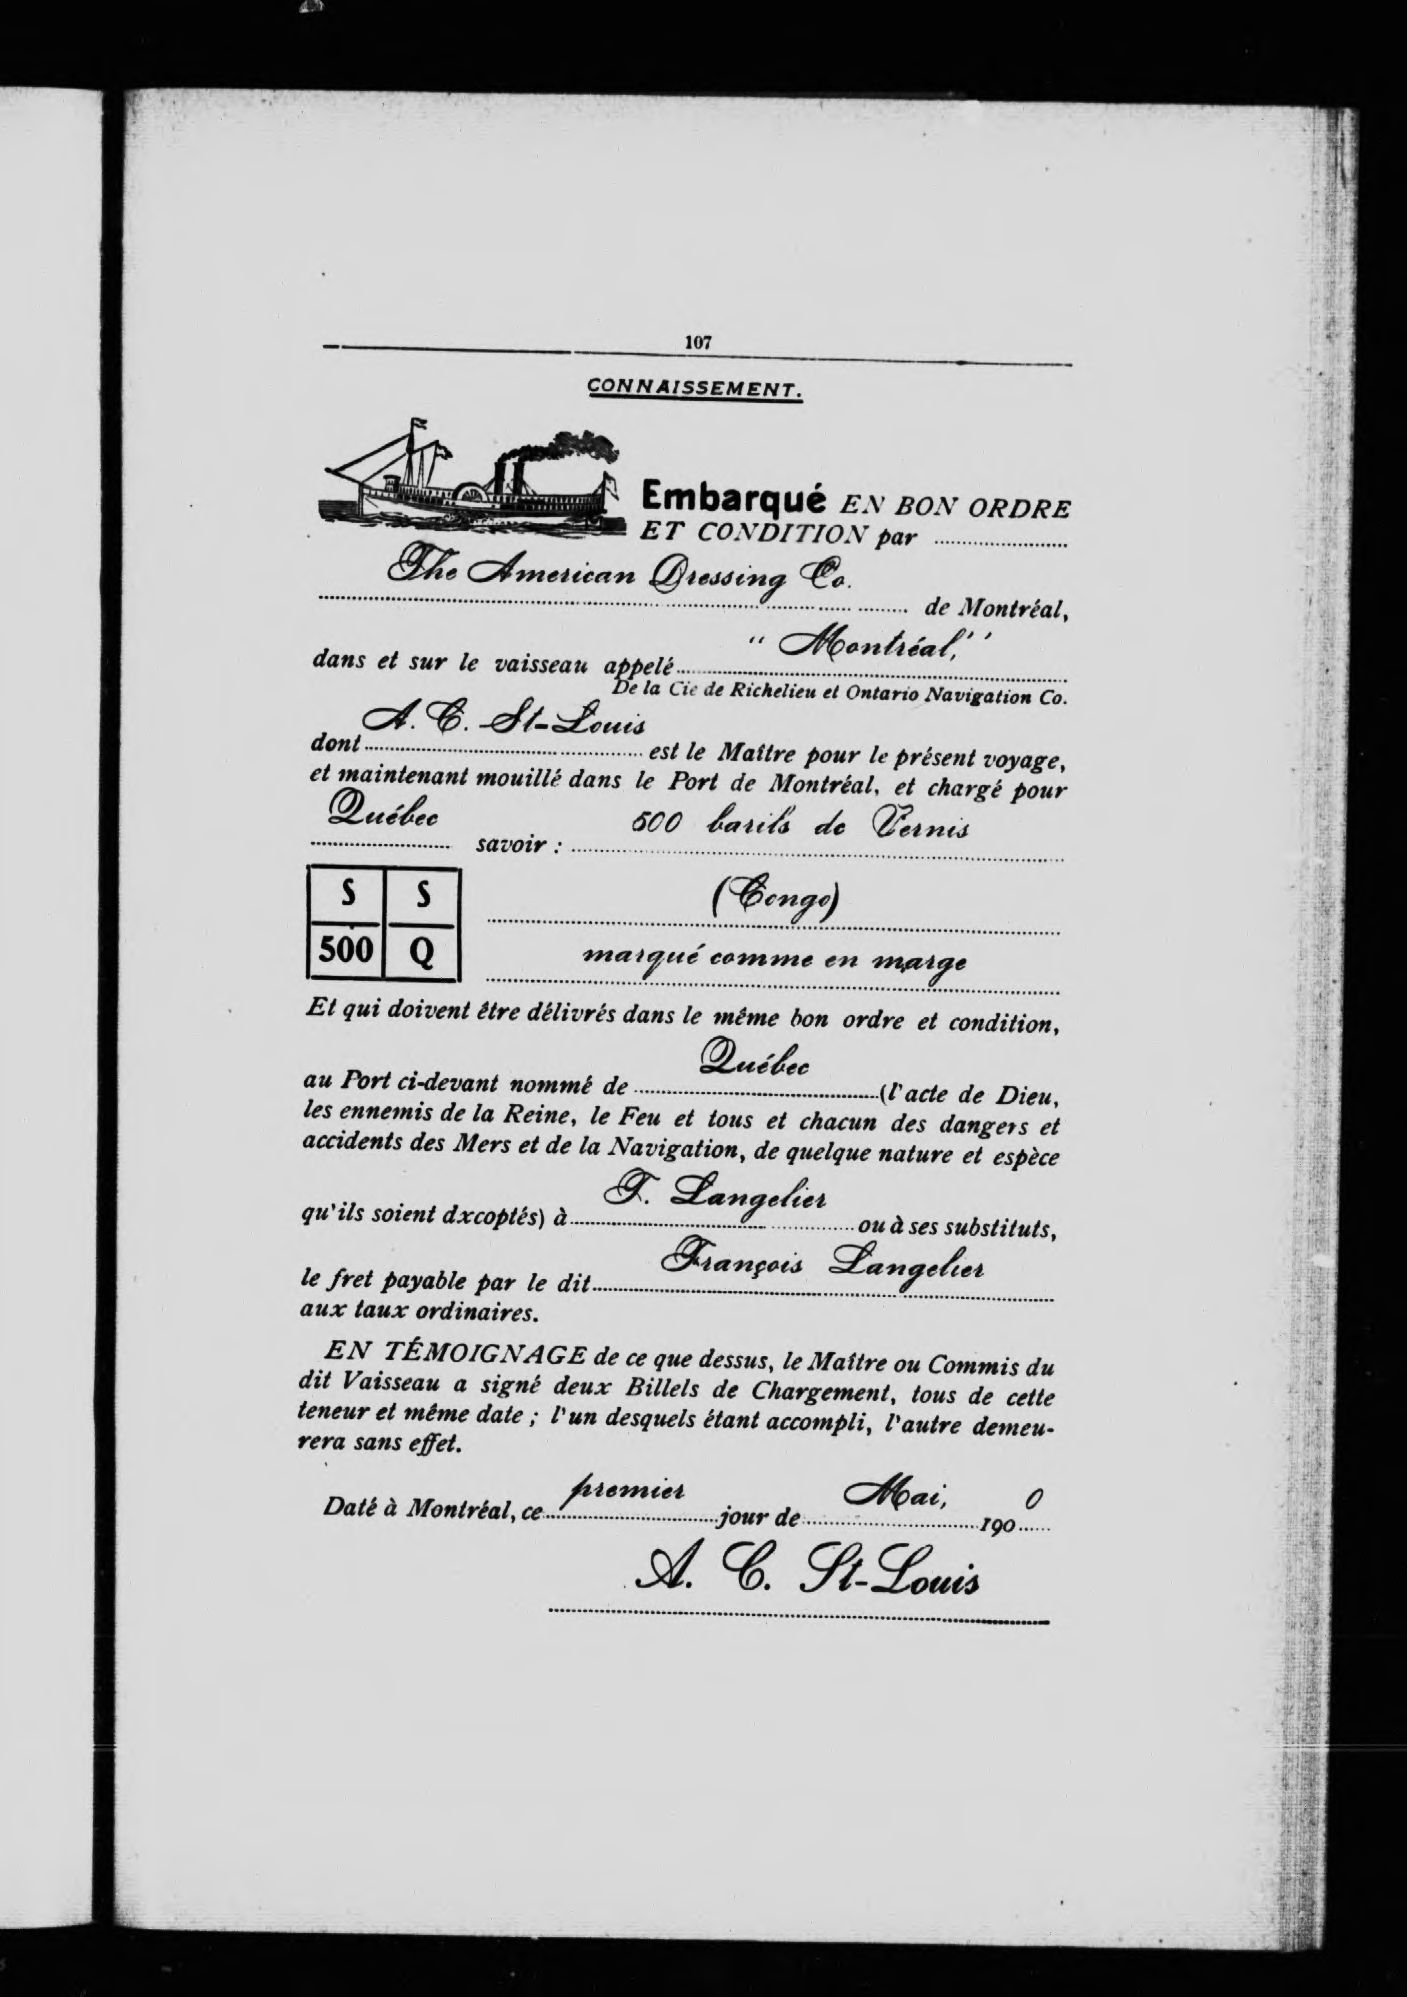 107
CONNAISSEMENT.
Embarqué EN BON ORDRE
ET CONDITION par
The American Dressing Co.
de Montréal,
" Montréal,"
dans et sur le vaisseau appelé
De la Cie de Richelieu et Ontario Navigation Co.
A. C. St-Louis
dont est le Maître pour le présent voyage,
et maintenant mouillé dans le Port de Montréal, et chargé pour
Québec 500 barils de Vernis
savoir :
S S
(Congo)
500 Q
marqué comme en marge
Et qui doivent être délivrés dans le même bon ordre et condition,
Québec
au Port ci-devant nommé de (l'acte de Dieu,
les ennemis de la Reine, le Feu et tous et chacun des dangers et
accidents des Mers et de la Navigation, de quelque nature et espèce
F. Langelier
qu'ils soient dxcoptés) à ou à ses substituts,
François Langelier
le fret payable par le dit
aux taux ordinaires.
EN TÉMOIGNAGE de ce que dessus, le Maître ou Commis du
dit Vaisseau a signé deux Billels de Chargement, tous de cette
teneur et même date ; l'un desquels étant accompli, l'autre demeu-
rera sans effet.
premier Mai, 0
Daté à Montréal, ce jour de 190
A. C. St-Louis